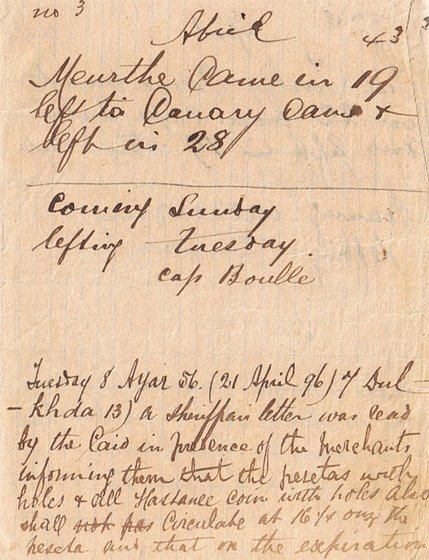 no 3
Abril 43
Meurthe Came in 19
left to Canary Came &
left in 28
coming Sunday
lefting Tuesday
cap Boulle
Tuesday 8 Ayar 56. (21 April 96) 7 Dul
-khda 13) a sheriffian letter was read
by the Caid in presence of the merchants
informing them that the pesetas with
holes & all Hassanee coin with holes also
shall not pas Circulate at 16¼ ouz the
peseta and that on the expiration